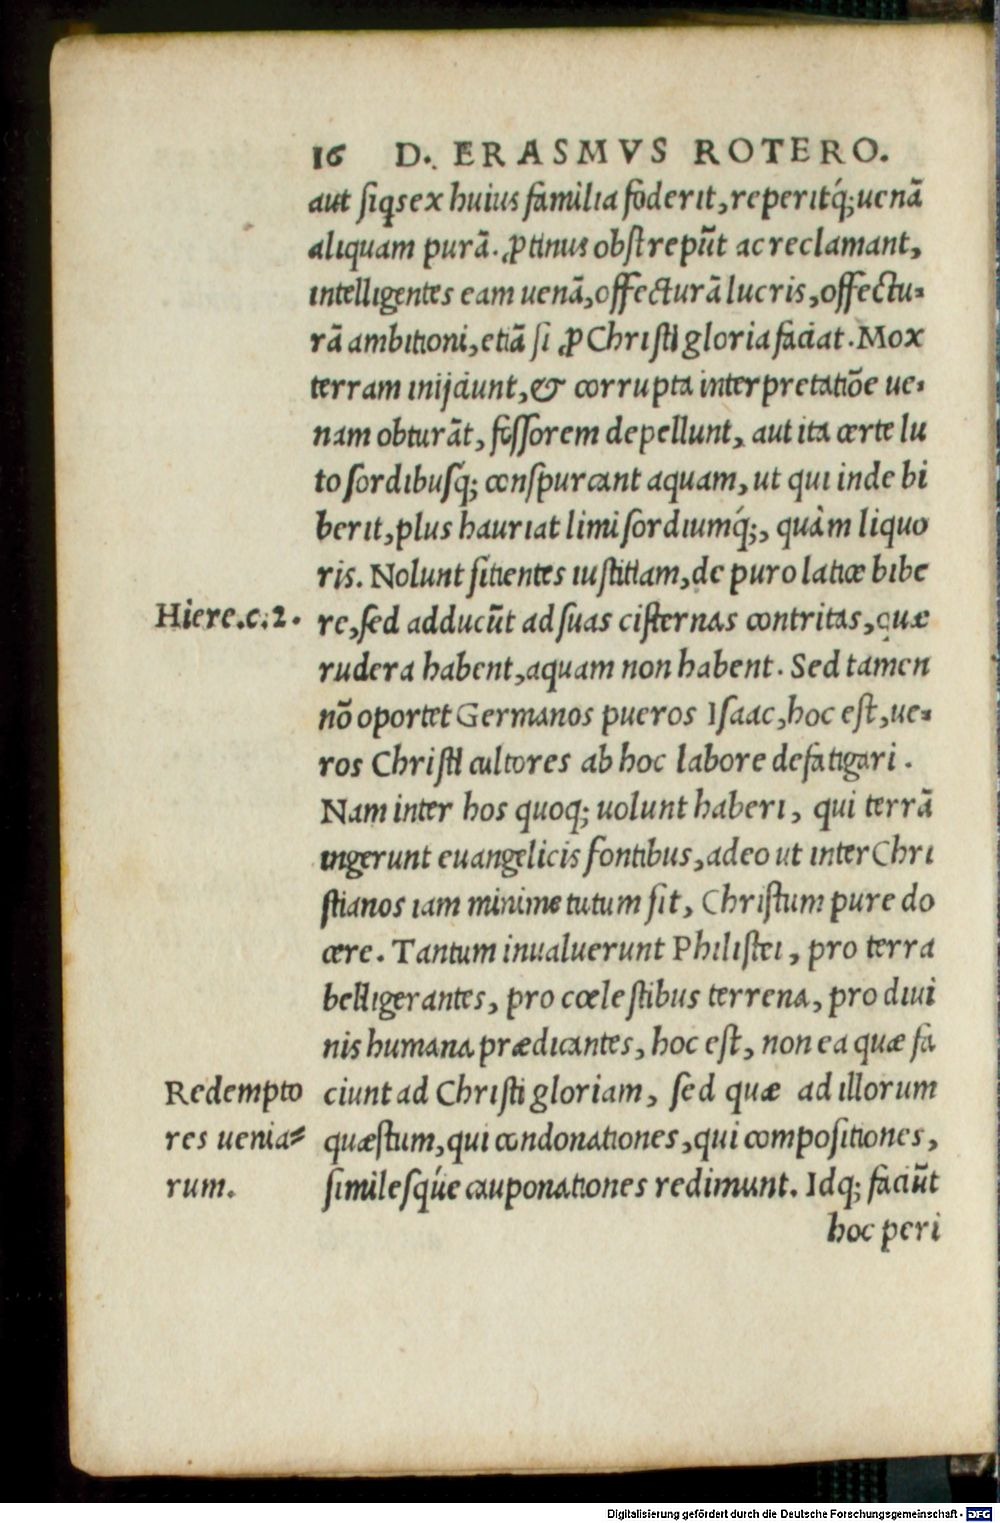 16 D. ERASMVS ROTERO.
aut siqs ex huius familia foderit, reperitq́; uenā
aliquam purā. ꝓtinus obstrepūt ac reclamant,
intelligentes eam uenā, offecturā lucris, offectu-
rā ambitioni, etiā si ꝓ Christi gloria faciat. Mox
terram inijciunt, & corrupta interpretatiōe ue-
nam obturāt, fossorem depellunt, aut ita certe lu
to sordibusq́; conspurcant aquam, ut qui inde bi
berit, plus hauriat limi sordiumq́;, quàm liquo
ris. Nolunt sitientes iustitiam, de puro latice bibe
Hiere.c.2. re, sed adducūt ad suas cisternas contritas, quæ
rudera habent, aquam non habent. Sed tamen
nō oportet Germanos pueros Isaac, hoc est, ue-
ros Christi cultores ab hoc labore defatigari.
Nam inter hos quoq; uolunt haberi, qui terrā
ingerunt euangelicis fontibus, adeo ut inter Chri
stianos iam minime tutum sit, Christum pure do
cere. Tantum inualuerunt Philistei, pro terra
belligerantes, pro cœlestibus terrena, pro diui
nis humana prædicantes, hoc est, non ea quæ fa
Redempto ciunt ad Christi gloriam, sed quæ ad illorum
res uenia- quæstum, qui condonationes, qui compositiones,
rum. similesq́ue cauponationes redimunt. Idq; faciūt
hoc peri
Digitalisierung gefördert durch die Deutsche Forschungsgemeinschaft - DFG